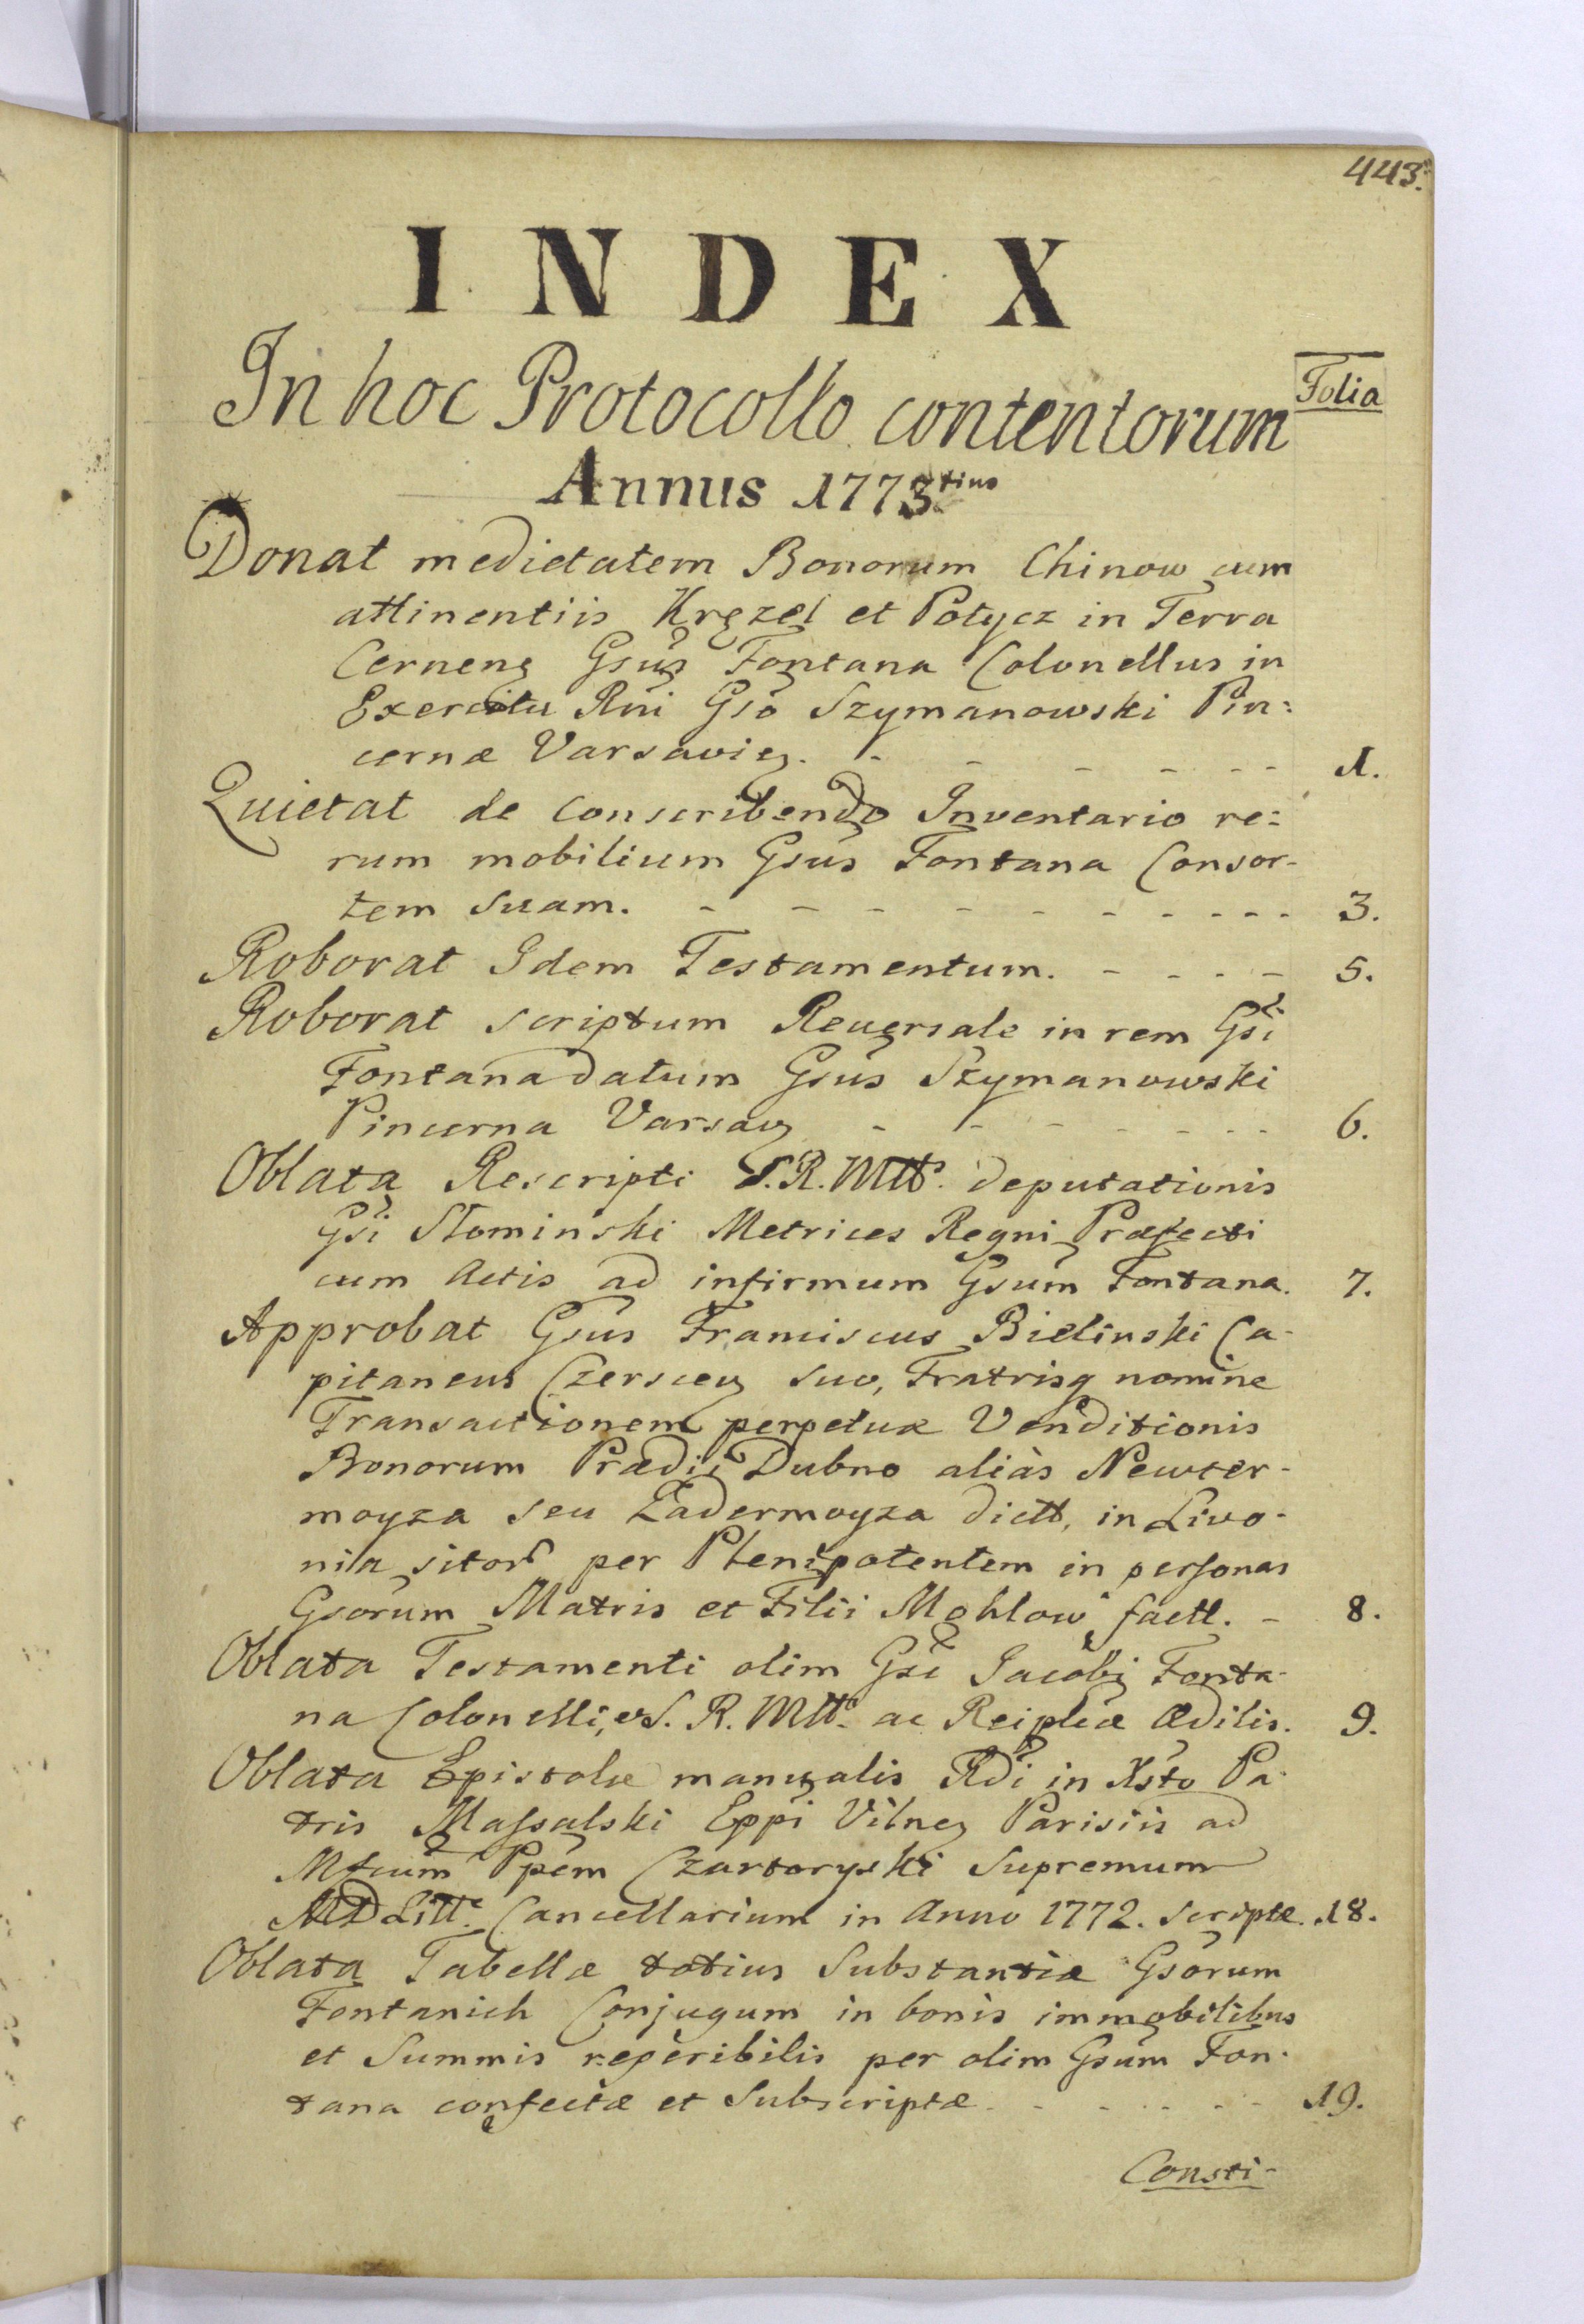 443.
INDEX
In hoc Protocollo contentorum
Folia
Annus 1773tius
Donat medietatem Bonorum Chinow cum
attinentiis Kręzel et Potycz in Terra
Cernenȝ Gsus Fontana Colonellus in
Exercitu Rni Gso Szymanowski Pin:
cernæ Varsavieȝ. - - - - - - 1.
Quietat de conscribendo Inventario re:
rum mobilium Gsus Fontana Consor-
tem suam. - - - - - - - - - - 3.
Roborat Idem Testamentum. - - - - 5.
Roborat scriptum Reversale in rem Gsi
Fontana datum Gsus Szymanowski
Pincerna Varsavȝ - - - - - - - 6.
Oblata Rescripti S.R.Mtts. deputationis
Gsi Słominski Metrices Regni Præfecti
cum Actis ad infirmum Gsum Fontana. 7.
Approbat Gsus Franciscus Bielinski Ca-
pitaneus Czersceȝ suo, Fratrisq nomine
Transactionem perpetuæ Venditionis
Bonorum Prædii Dubno aliàs Newter-
moyza seu Zadermoyza dictt. in Livo-
nia sitor per Plenipotentem in personas
Gsorum Matris et Filii Mohlow factt. - 8.
Oblata Testamenti olim Gsi Jacobi Fonta-
na Colonelli, S. R. Mtt. ac Reiplcæ Ædilis. 9.
Oblata Epistolæ manualis Rdi in Xsto Pa-
tris Massalski Eppi Vilneȝ Parisiis ad
Mfcum Ppem Czartoryski Supremum
MD Litt. Cancellarium in Anno 1772. scriptæ. 18.
Oblata Tabellæ totius Substantiæ Gsorum
Fontanich Conjugum in bonis immobilibus
et Summis reperibilis per olim Gsum Fon-
tana confectæ et Subscriptæ. - - - - - - 19.
Consti-